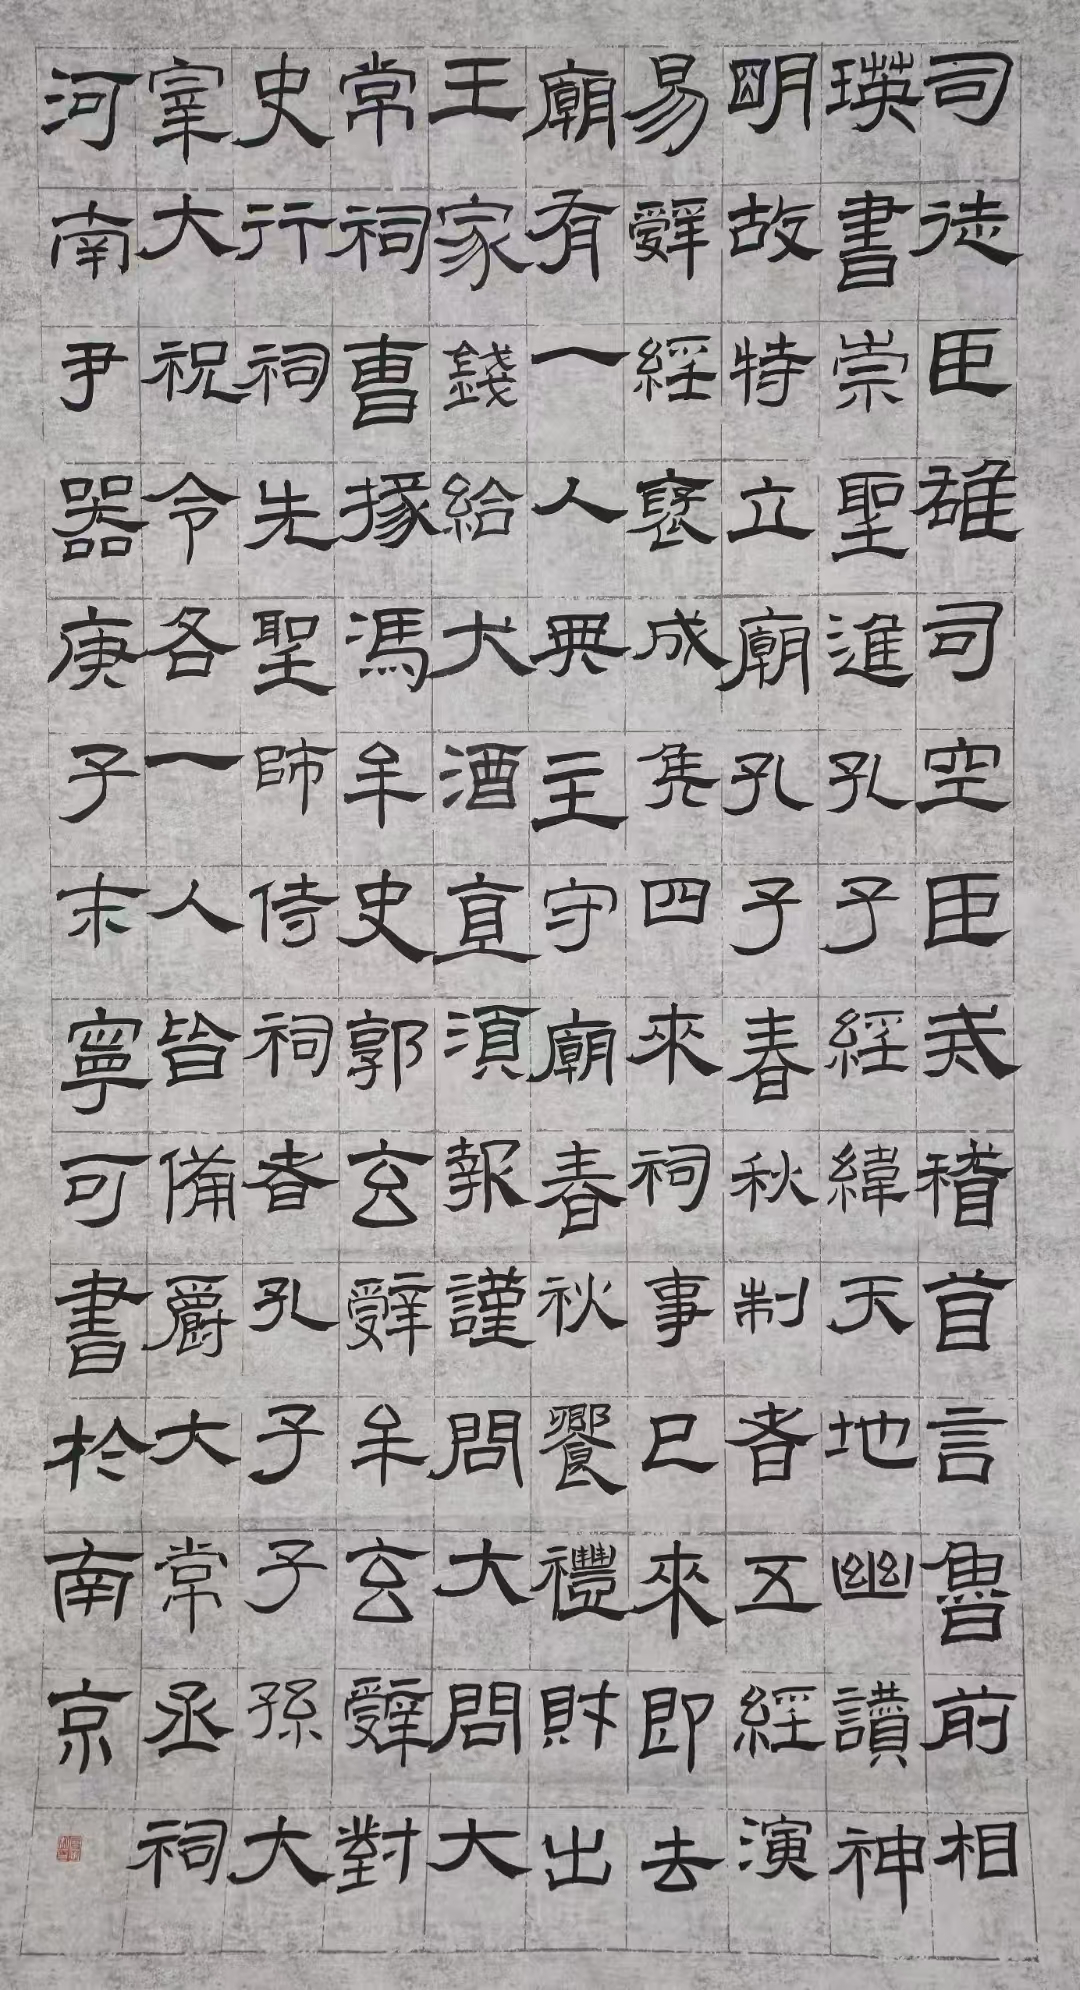 司徒臣雄司空臣戒稽首言魯前相
瑛書崇聖進孔子經緯天地幽讃神
明故特立廟孔子春秋制者五經演
易辭經褒成矦四來祠事已來即去
廟有一人典主守廟春秋饗禮財出
王家錢給犬酒直須報謹問大問大
常祠曹掾馮牟史郭玄辭牟玄辭對
史行祠先聖師侍祠者孔子子孫大
宰大祝令各一人皆備爵大常丞祠
河南尹器庚子末寧可書於南京